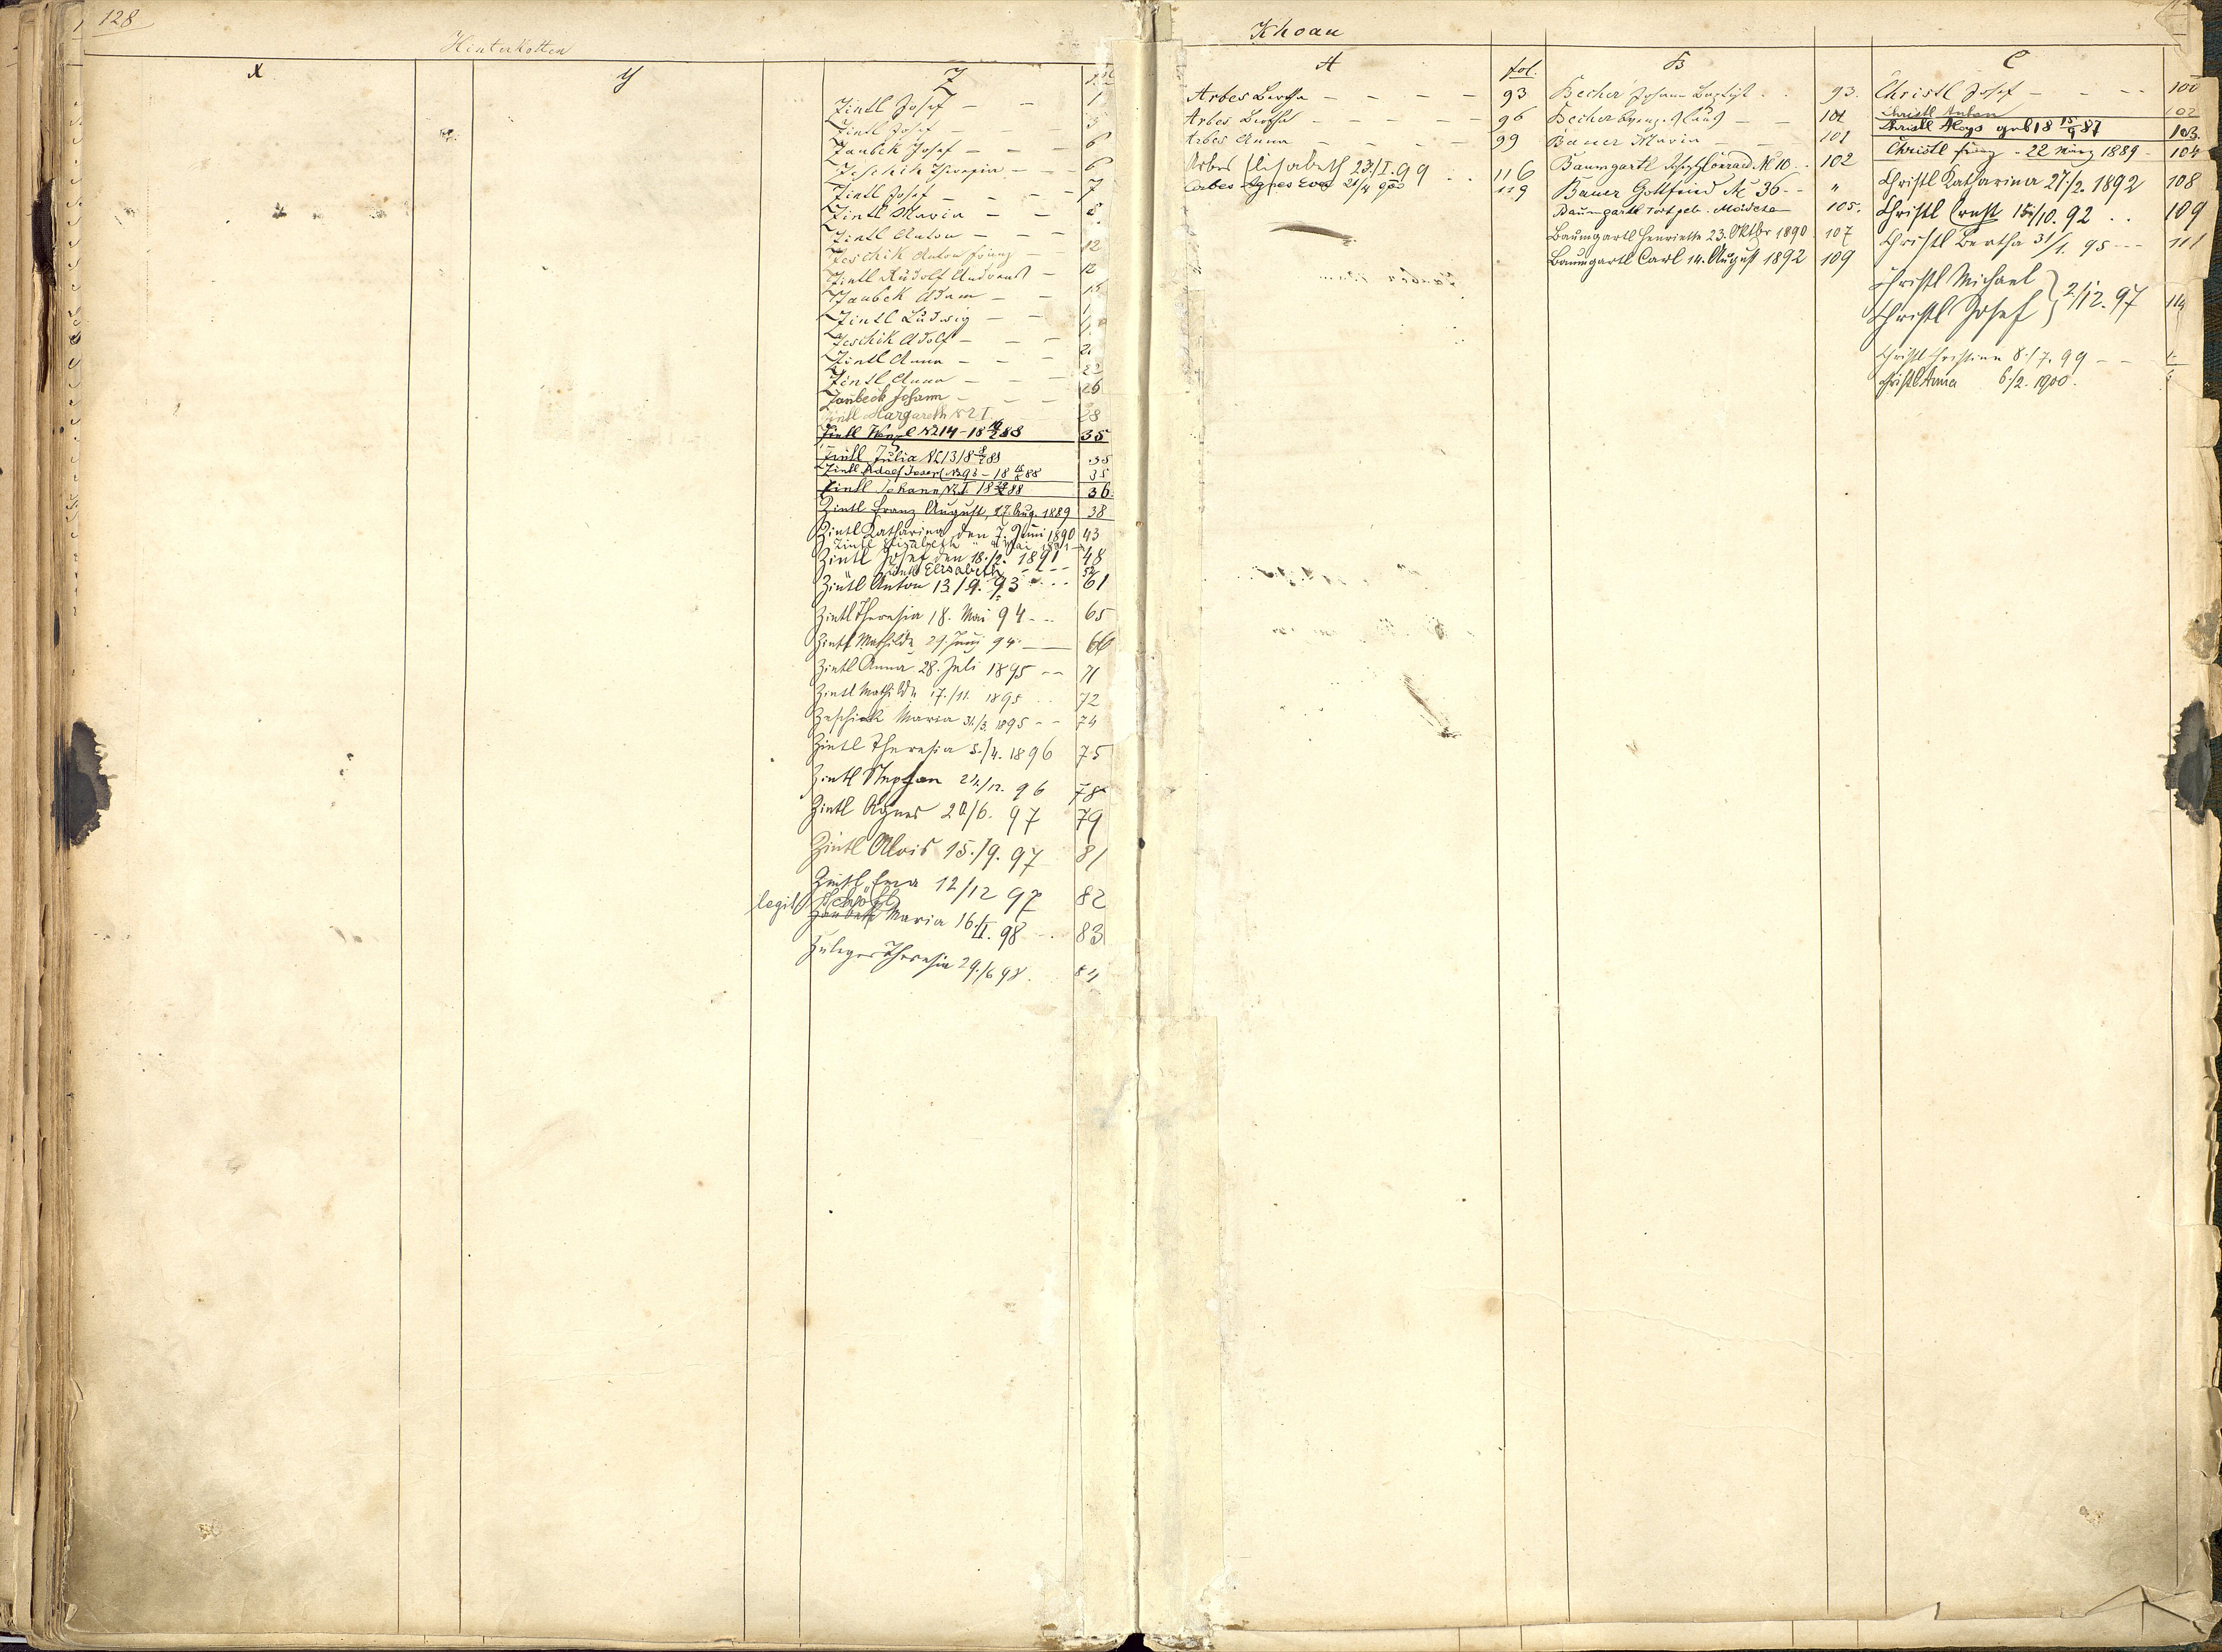 128
Hinterkotten
X
Y
Z
Zintl Josef - - 1
Zintl Josef - - -
Zaubek Josef - - - 6
Zeschik Theresia - - 6
Zintl Josef - - - 7
Zintl Maria - -
Zintl Anton - - -
Zeschik Anton Franz - 12
Zintl Rudolf Andreas - 12
Zaubek Adam - -
Zintl Ludwig - -
Zeschik Adolf - - -
Zintl Anna - - -
Zintl Anna - - - 22
Zaubeck Johann - - - 26
Zintl Margareth N 2 I. 28
Zintl N214 - 18 88 35
Zintl Julia N 13 18 88 35
Zintl Adolf Josef N 93 - 18 88 35
Zintl Johann N I. 18 88 36.
Zintl Franz August, 27. Aug. 1889 38
Zintl Katharina den 7. Juni 1890 43
Zintl Elisabeth " Mai 1891
Zintl Josef den 18./2. 1891 48
Zintl Elisabeth - - - 52
Zintl Anton 13/9. 93 - . . 61
Zintl Theresia 18. Mai 94 - - 65
Zintl Mathilde 29. Juni 94 — 66
Zintl Anna 28. Juli 1895 -- 71
Zintl Mathilde 17./11. 1895 . . 72
Zeschick Maria 31./3. 1895 - - 74
Zintl Theresia 5./4. 1896 75
Zintl Stephan 24./12. 96 78
Zintl Agnes 20/6. 97 79
Zintl Alois 15./9. 97 81
Zintl Erna 12/12 97 82
legit.
Zaubek Maria 16./II. 98 - . 83
Zuleger Theresia 29./6 98. 84
Khoau
A
fol.
B
C
Arbes Bertha - - - - 93
Arbes Bertha - - - - - 96
Arbes Anna - - - - - 99
Arbes Elisabeth 23./I. 99 . . 116
Arbes Agnes Eva 21/4 900 119
Becher Johann Baptist . . 93.
Becher Franz Klaus - - 101
Bauer Maria - - - 101
Baumgartl Josef Conrad. N 10. . 102
Bauer Gottfried N 36 - - "
Baumgartl todtgeb. Mädchen 105.
Baumgartl Henriette 23. Oktbr 1890. 107
Baumgartl Carl 14. August 1892 109
Christl Josef - - - - 100
Christl Anton 102
Christl Aloys geb 18 15/9 87 103.
Christl Franz - 22 März 1889 - 104
Christl Katharina 27./2. 1892 108
Christl Ernst 15/10. 92 . . 109
Christl Bertha 31/1. 95 - - - 111
Christl Michael
Christl Josef } 2/12. 97 114
Christl Christina 8./7. 99 - -
Christl Anna 6./2. 1900.